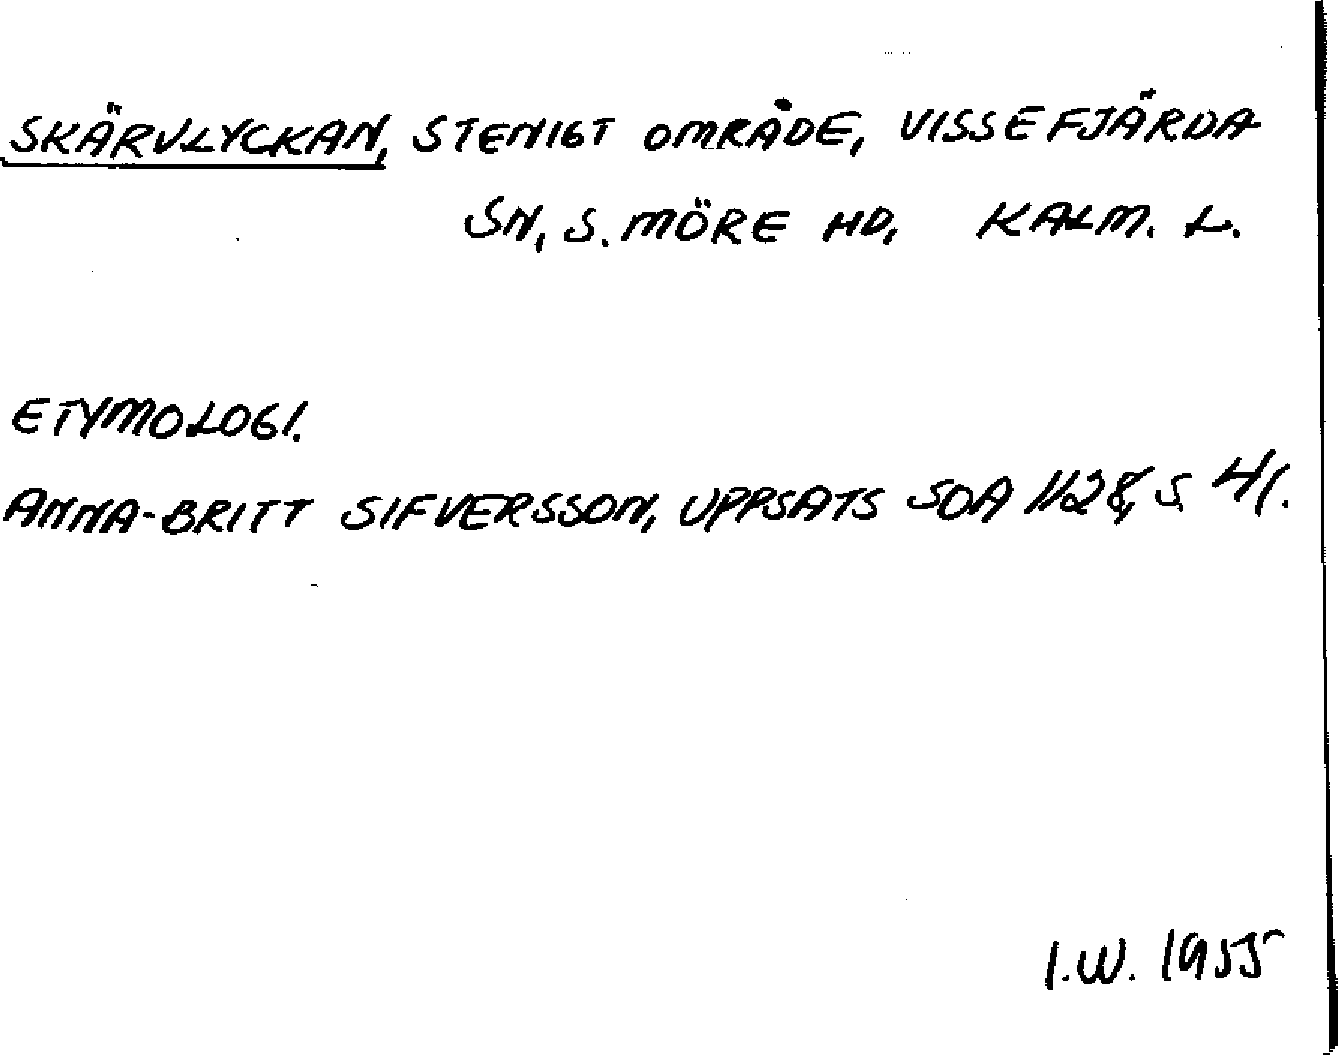 SKÄRVLYCKAN, STENIGT OMRÅDE, VISSEFJÄRDA
SN, S. MÖRE HD, KALM. L.
ETYMOLOGI.
ANNA-BRITT SIFVERSSON, UPPSATS SOA 1128, S 41.
I.W. 1955